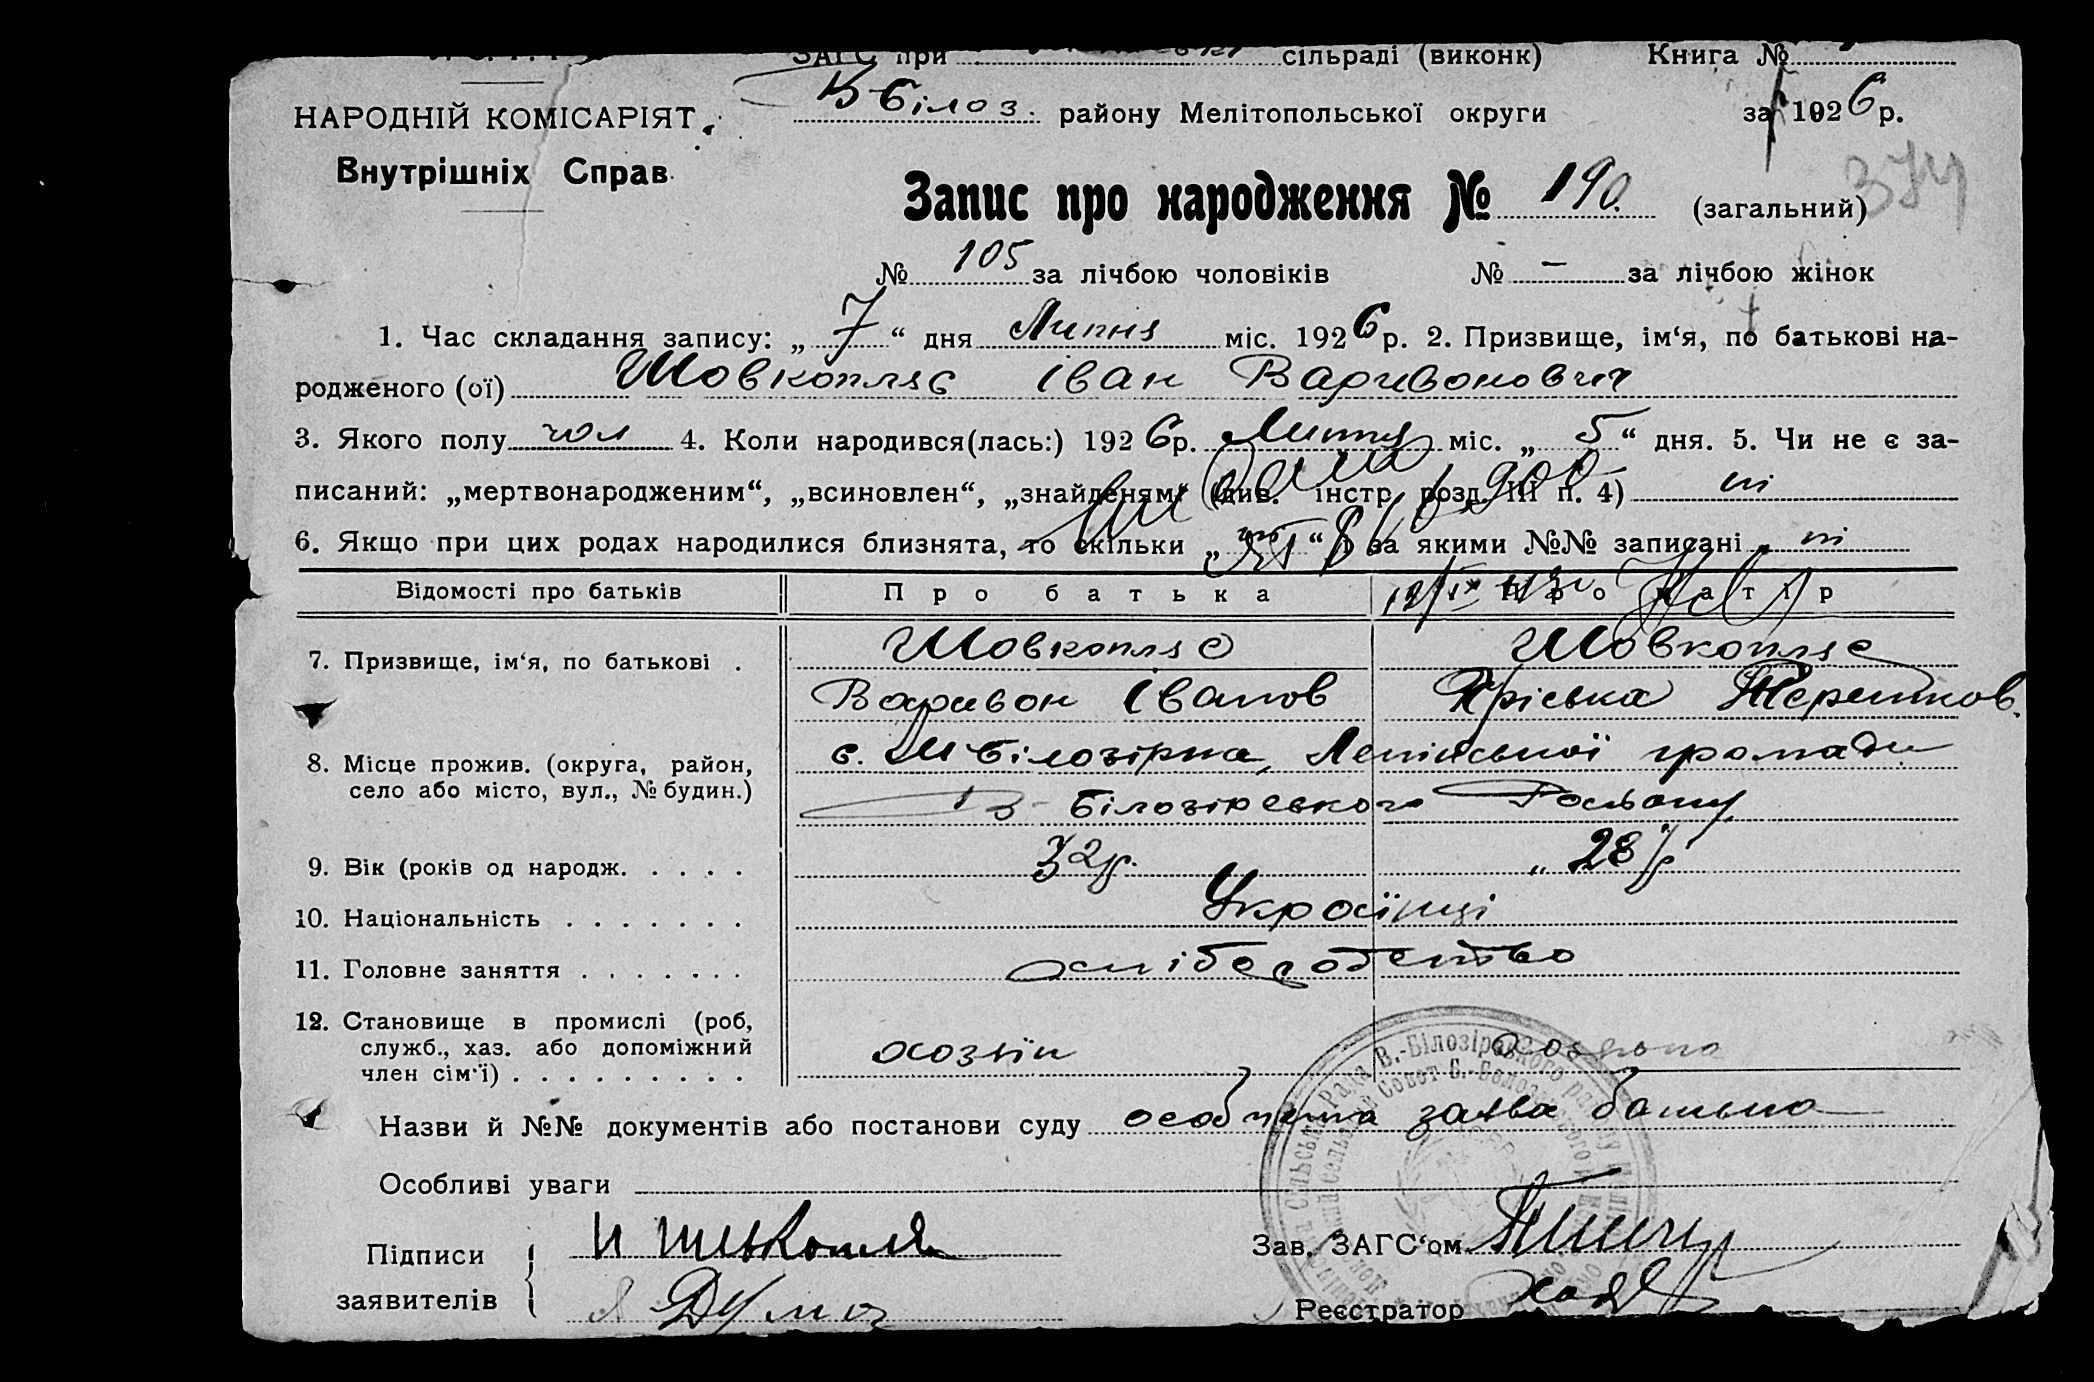 ЗАГС при сільраді (виконк) Книга №
В-Білоз. району Мелітопольської округи за 1926 р.
НАРОДНІЙ КОМІСАРІЯТ
Внутрішніх Справ
374
Запис про народження № 190. (загальний)
№ 105 за лічбою чоловіків № — за лічбою жінок
1. Час складання запису: „ 7 “ дня Липня міс. 1926 р. 2. Призвище, ім‘я, по батькові на-
родженого (ої) Шовкопляс Іван Варивонович
3. Якого полу чол 4. Коли народився(лась:) 1926 р. Липня міс. „ 5 “ дня. 5. Чи не є за-
писаний: „мертвонародженим“, „всиновлен“, „знайденям“ (див. інстр. розд. III п. 4) ні
6. Якщо при цих родах народилися близнята, то скільки „ “ і за якими №№ записані ні
Відомості про батьків Про батька Про матір
7. Призвище, ім‘я, по батькові . Шовкопляс Шовкопляс
Варивон Іванов Пріська Терешков.
8. Місце прожив. (округа, район, с. М Білозірка, Ленінської громади
село або місто, вул., № будин.) В-Білозірського Району
9. Вік (років од народж. . . . . 32 р. „ 28 р
10. Національність . . . . . . . Українці
11. Головне заняття . . . . . . . хліборобство
12. Становище в промислі (роб,
служб., хаз. або допоміжний хозяїн
член сім‘ї) . . . . . . . . .
Назви й №№ документів або постанови суду особиста заява батька
Особливі уваги
Підписи Зав. ЗАГС‘ом
заявителів Реєстратор